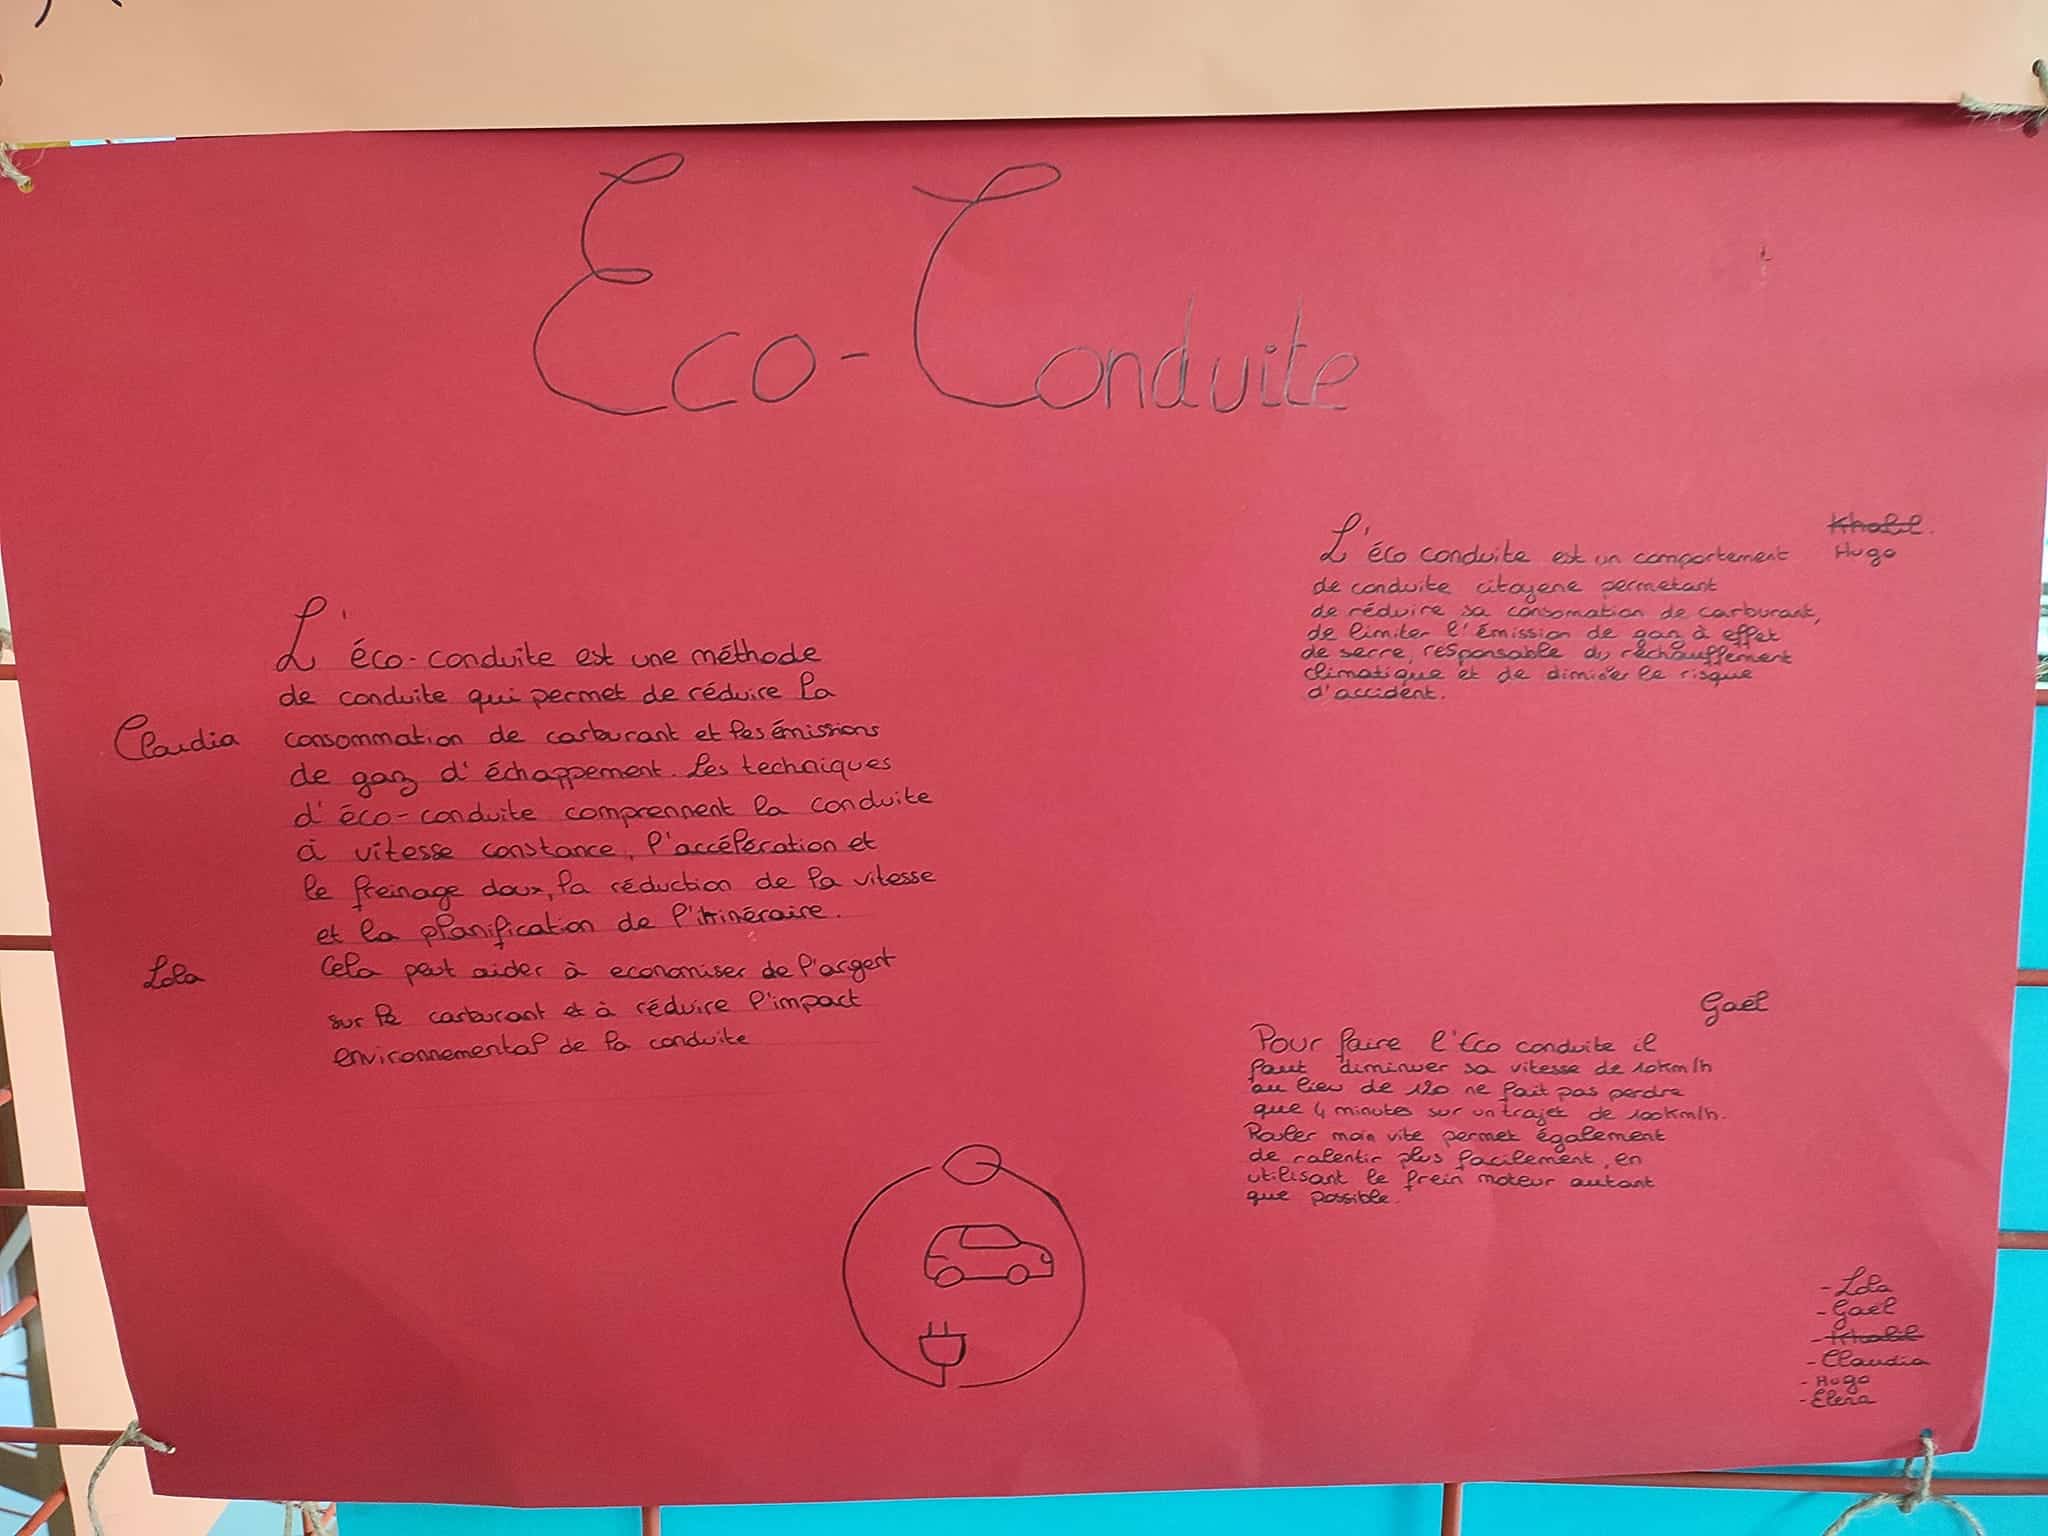 Eco-Conduite
L'éco-conduite est une méthode
de conduite qui permet de réduire la
Claudia
consommation de carburant et les émissions
de gaz d'échappement. Les techniques
d'éco-conduite comprennent la conduite
à vitesse constance, l'accélération et
le freinage doux, la réduction de la vitesse
et la planification de l'itinéraire.
Lola
Cela peut aider à economiser de l'argent
sur le carburant et à réduire l'impact
environnemental de la conduite
Khalil.
Hugo
L'éco conduite est un comportement
de conduite citoyene permetant
de réduire sa consomation de carburant,
de limiter l'émission de gaz à effet
de serre, responsable du réchauffement
climatique et de diminer le risque
d'accident.
Gaël
Pour faire l'Eco conduite il
faut diminuer sa vitesse de 10km/h
au lieu de 120 ne fait pas perdre
que 4 minutes sur un trajet de 100km/h.
Rouler moin vite permet également
de ralentir plus facilement, en
utilisant le frein moteur autant
que possible.
- Lola
- Gaël
- Khalil
- Claudia
- Hugo
- Elena